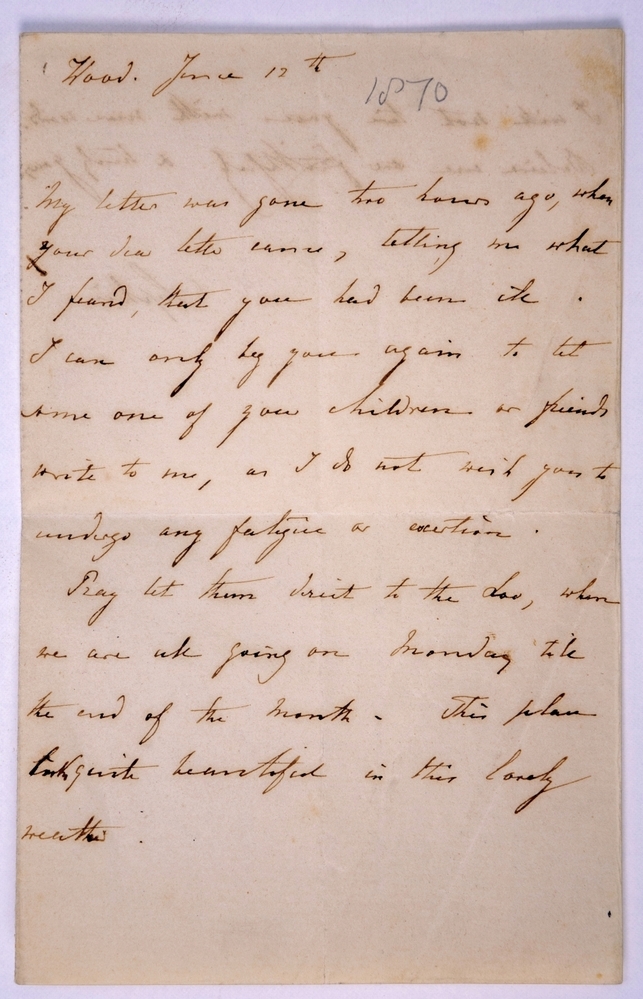 Wood. June 12th
1870
My letter was gone two hours ago, when
your dear letter came, telling me what
I feared, that you had been ill.
I can only beg you again to let
some one of your children or friends
write to me, as I do not wish you to
undergo any fatigue or exertion.
Pray let them direct to the Loo, where
we are all going on Monday till
the end of the month. This place
looks quite beautiful in this lovely
weather.